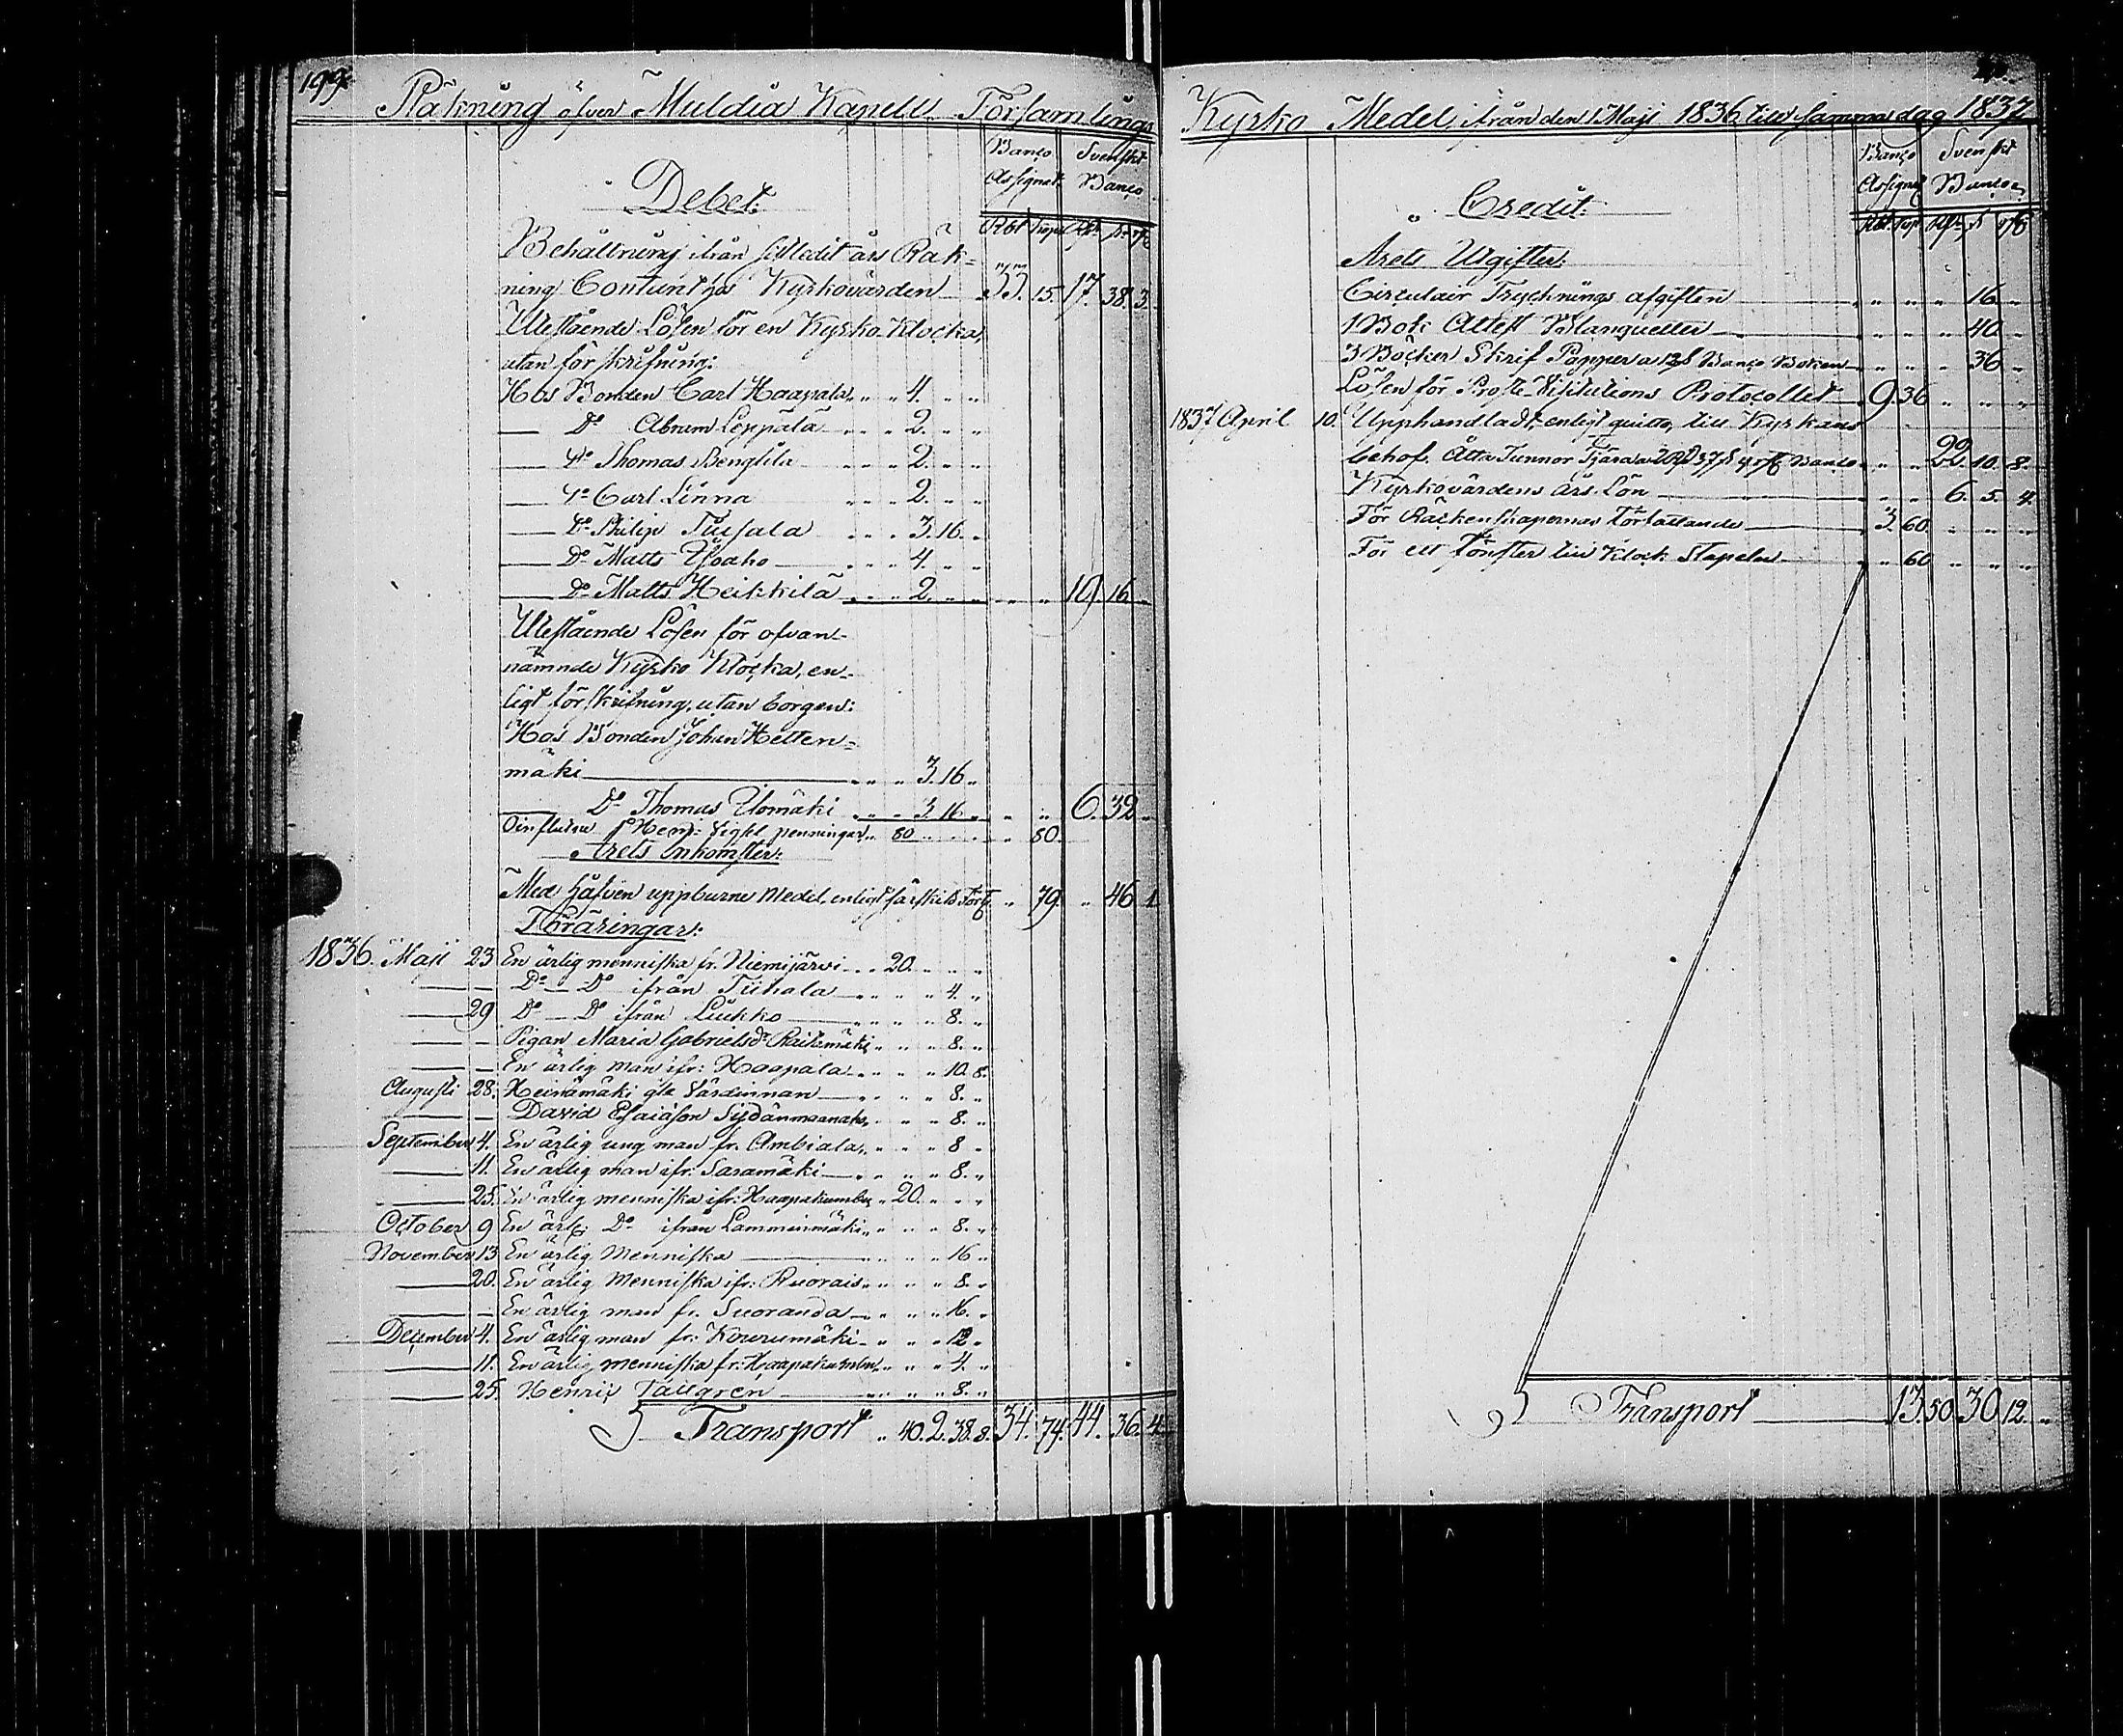 199.
Räkning öfver Muldia Kapell Församlings
Banco Assignat. Svenskt Banco
Debet:
Rbl Kop Rd s rst
Behållning ifrån sistledit års Räk=
ning Contant hos Kyrkovärden 33. 15. 17. 38. 3.
Utestående Lösen för en Kyrko Klocka,
utan förskrifning:
Hos Bonden Carl Haapala 4.
Do Abram Leppälä 2.
Do Thomas Bengtila 2.
Do Carl Linna 2.
Do Philip Tuisala 3. 16.
Do Matts Ysoaho 4.
Do Matts Heikkilä 2. 19. 16
Utestående Lösen för ofvan-
nämnde Kyrko Klocka, en-
ligt förskrifning, utan borgen:
Hos Bonden Johan Hetten=
mäki 3. 16
Do Thomas Ulomäki 3. 16 6. 32
penningar 80 80.
Årets Inkomster:
Med Håfven uppburne Medel, enligt särskild Fört. 79. 46 1
Föräringar:
1836. Maji 23 En ärlig menniska fr. Niemijärvi 20.
Do Do ifrån Tiihala 4.
29 Do Do ifrån Liukko 8.
Pigan Maria Gabrielsdr Raitamäki 8.
En ärlig man ifr: Haapala 10. 8.
Augusti 28. Heinämäki gla Värdinnan 8.
David Esaiason Sydänmaanaho 8.
September 4. En ärlig ung man fr. Ambiala 8
11. En ärlig man ifr: Saramäki 8.
25. En ärlig menniska ifr: Haapakumbu 20.
October 9 En ärl: Do ifrån Lamminmäki 8.
November 13 En ärlig Menniska 16
20. En ärlig Menniska ifr: Ruorais 8.
En ärlig man fr. Suoranda 16.
December 4. En ärlig man fr: Kourumäki 12
11. En ärlig menniska fr: Haapakumbu 4.
25. Henric Tallgren 8.
Transport 40. 2. 38. 8. 34. 74. 44. 36. 4
Kyrko Medel, ifrån den 1 Maji 1836 till samma dag 1837
Banco Assignat Svenskt Banco
Credit:
Rbl. Kop Rd s rst
Årets Utgifter:
Circulair Trycknings afgiften 16
1 Bok Attest Blanquetter 40
3 Böcker Skrif Papper a 12 s Banco Boken 36
Lösen för Prosts Visitations Protocollet 9. 36
1837 April 10. Upphandladt, enligt quitto, till Kyrkans
behof. Åtta Tunnor Tjära a 2 Rd 37 s 4 rst Banco 22. 10. 8.
Kyrkovärdens års Lön 6. 5. 4.
För Räkenskapernas författande 3. 60
För ett fönster till Klock Stapeln 60
Transport 13. 50 30 12.